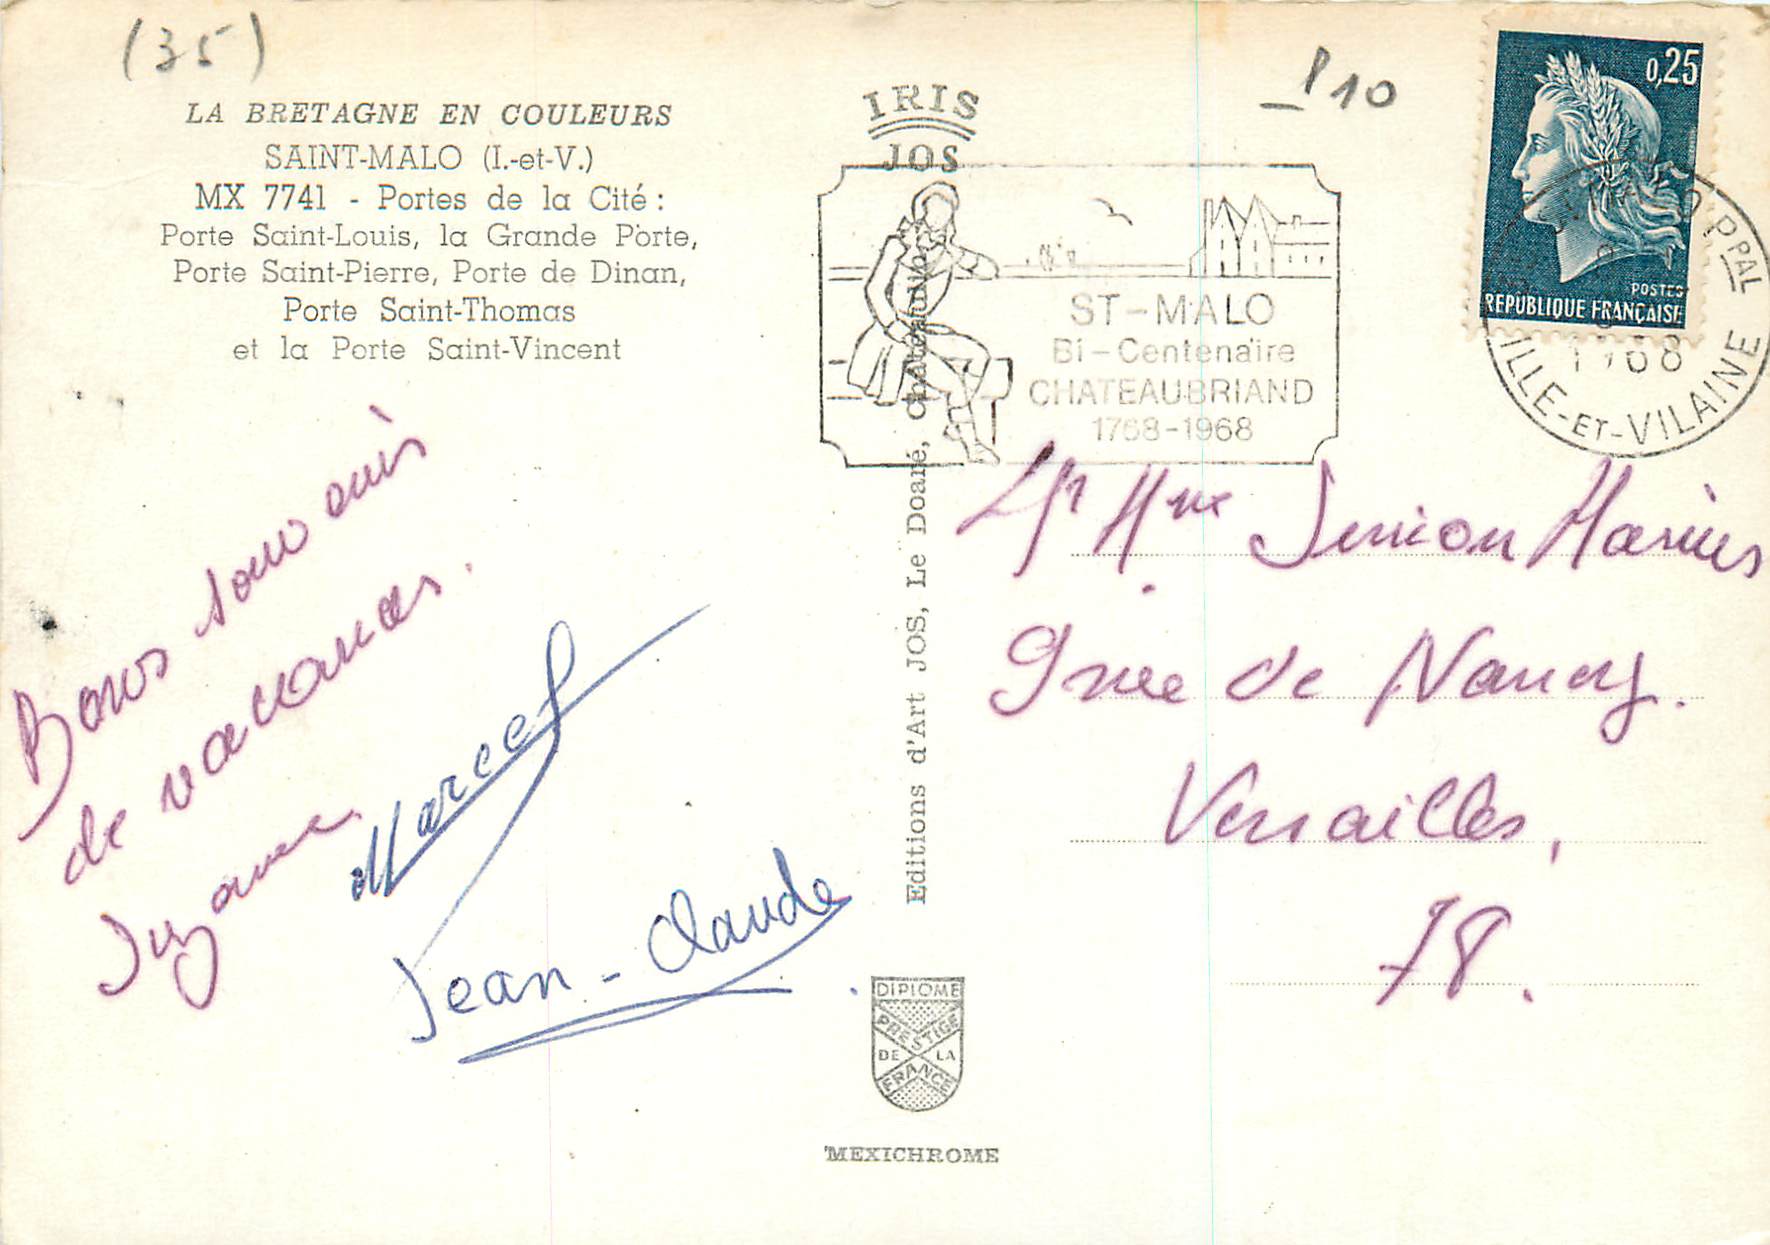 (35)
LA BRETAGNE EN COULEURS
SAINT-MALO (I.-et-V.)
MX 7741 - Portes de la Cité :
Porte Saint-Louis, la Grande Porte,
Porte Saint-Pierre, Porte de Dinan,
Porte Saint-Thomas
et la Porte Saint-Vincent
Bons souvenirs
de vacances.
Suzanne.
Marcel
Jean-Claude
IRIS
JOS
Editions d'Art JOS, Le Doaré, Châteaulin
DIPLOME
PRESTIGE
DE LA
FRANCE
MEXICHROME
ST-MALO
Bi-Centenaire
CHATEAUBRIAND
1768-1968
10
0,25
POSTES
REPUBLIQUE FRANÇAISE
PPAL
1968
ILLE-ET-VILAINE
Mr Mme Simon Marius
9 rue de Nancy.
Versailles,
78.